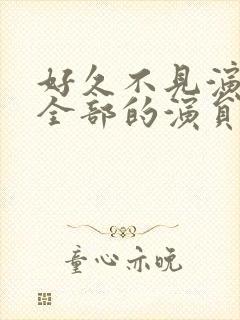 好久不见演
全部的演员
童心亦晚